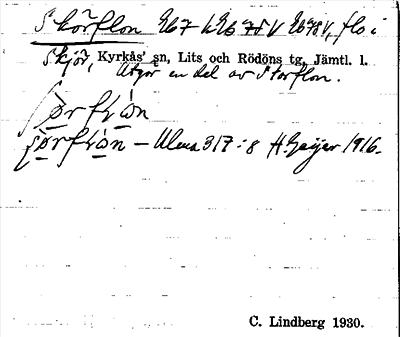 Skörflon Eb7 b Eb 78 V Eb78V, flo i
Skjör, Kyrkås' sn, Lits och Rödöns tg, Jämtl. l.
Utgör en del av Storflon.
– Ulma 317:8 H. Geijer 1916.
C. Lindberg 1930.